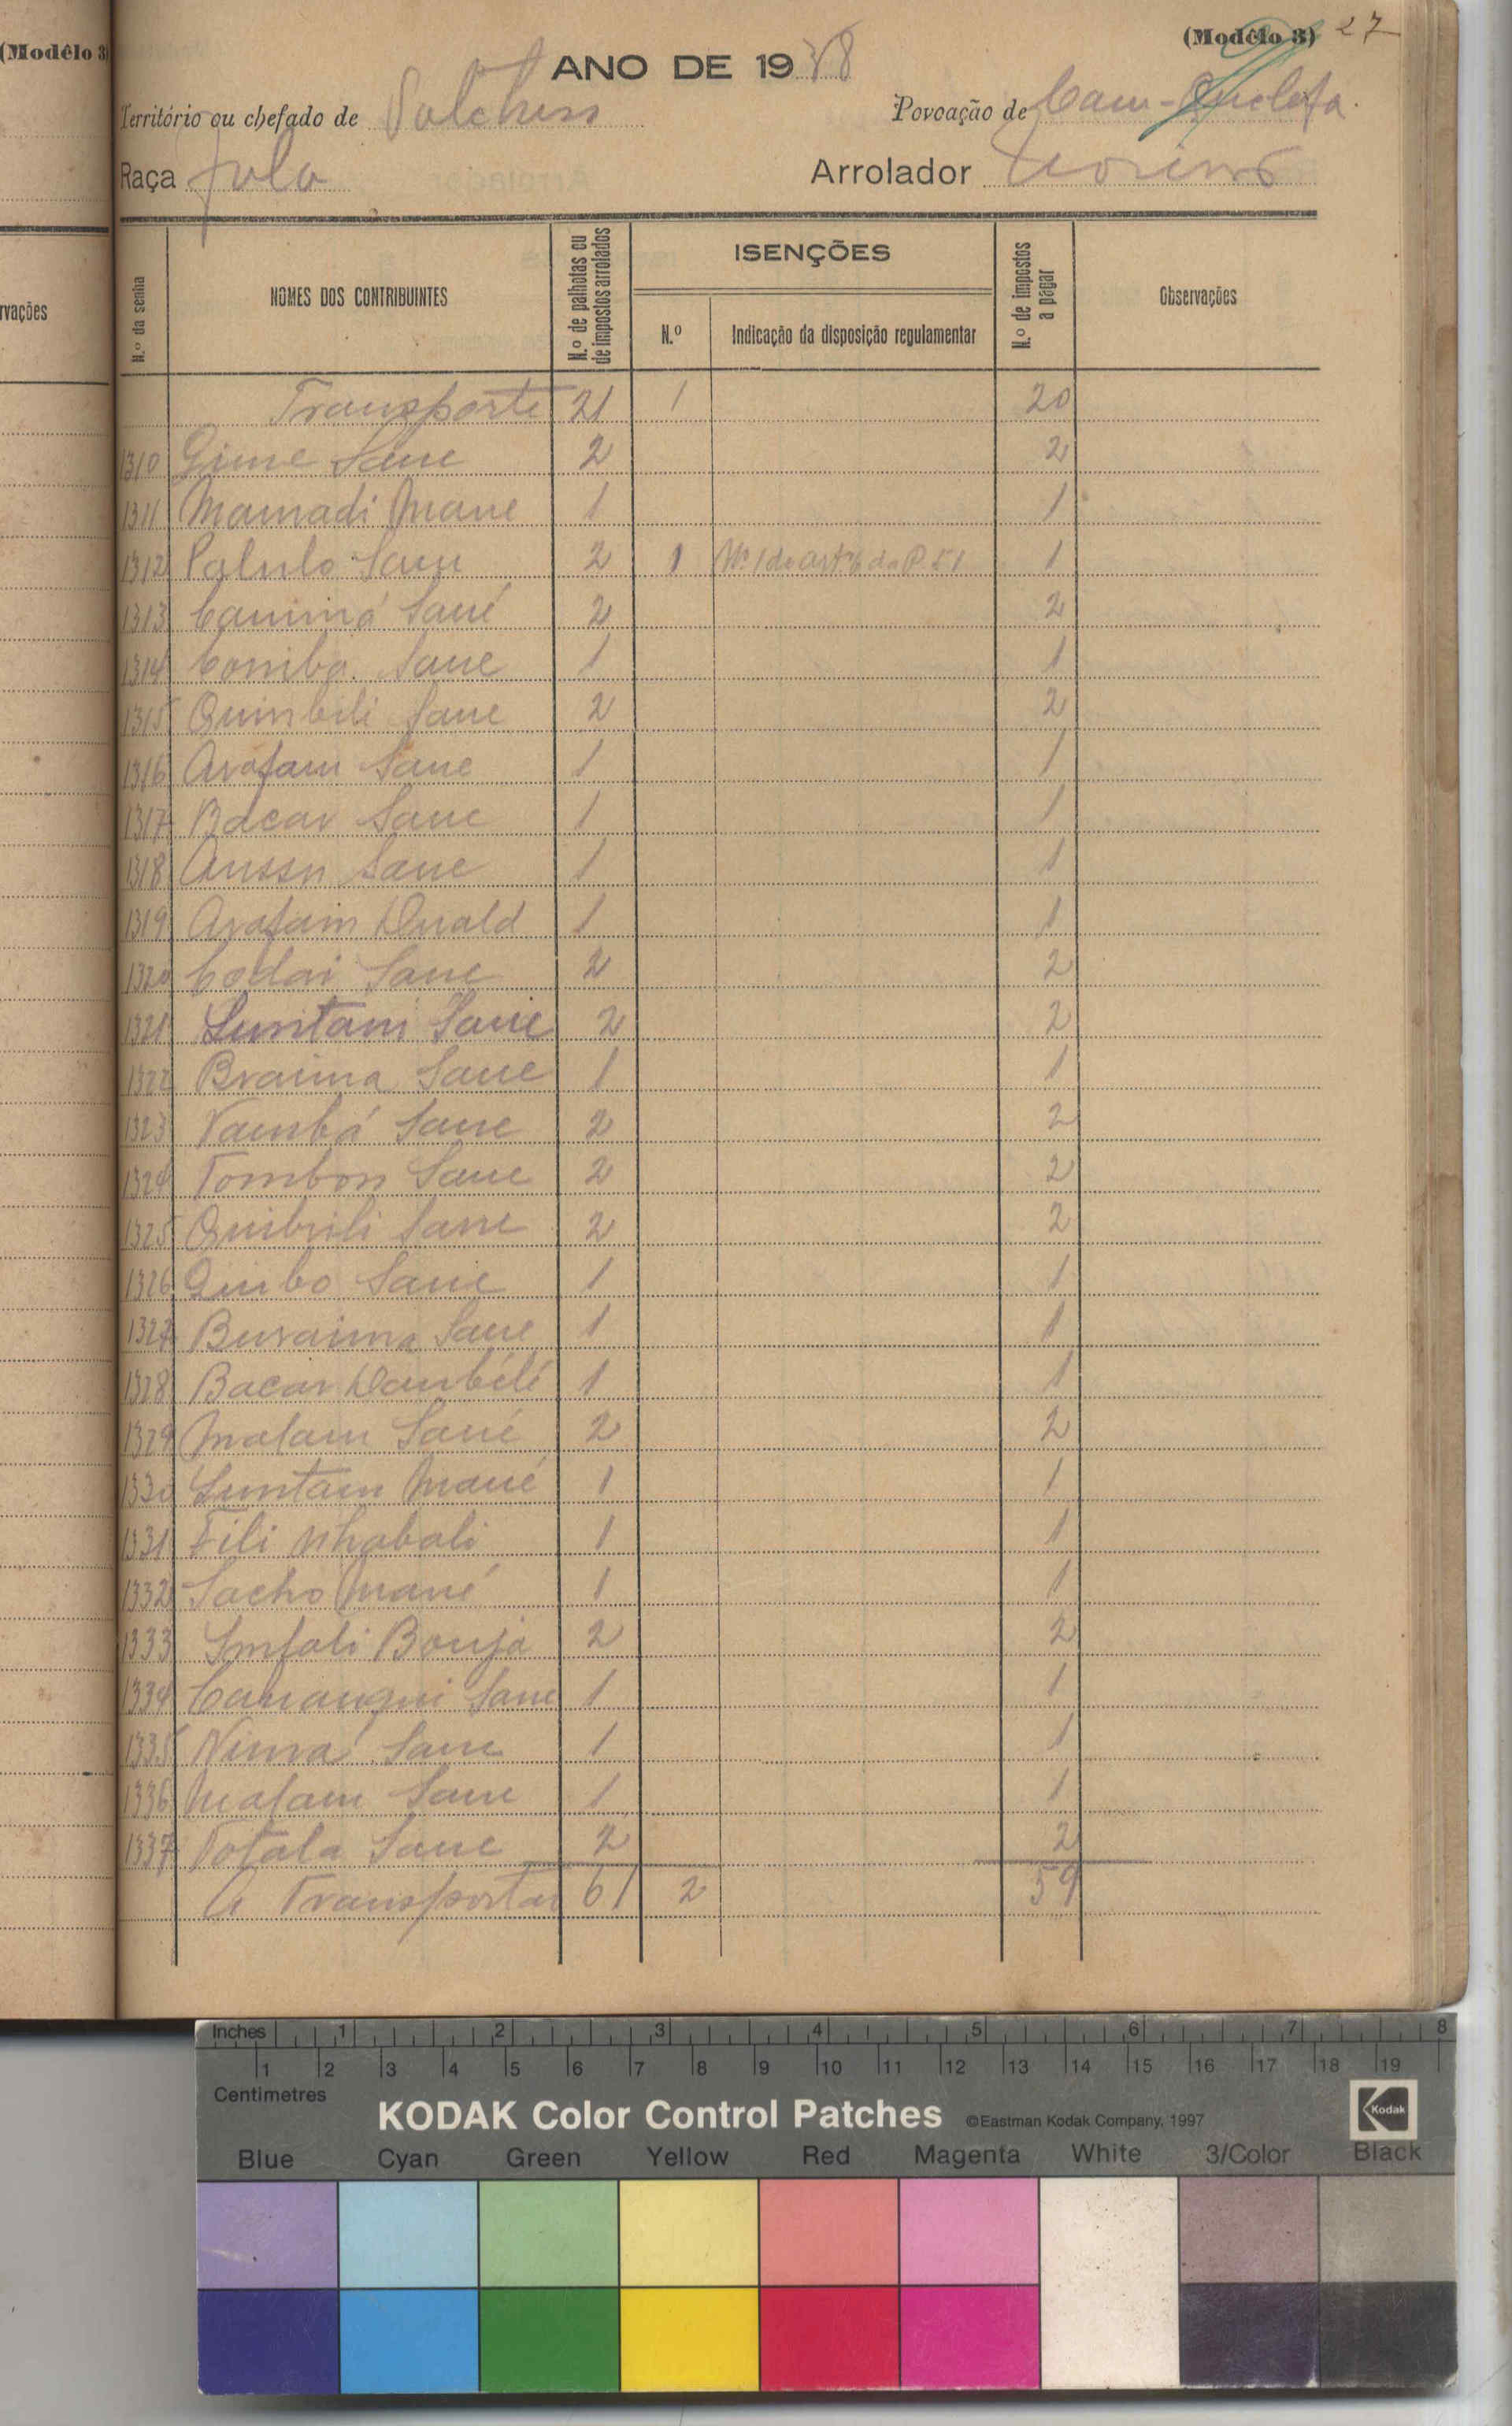 (Modêlo 3
(Modêlo 3) 27
ANO DE 1938
Território ou chefado de
Povoação de
Raça fula
Arrolador
rvações
N.º da senha
NOMES DOS CONTRIBUINTES
N.º de palhotas ou de impostos arrolados
ISENÇÕES
N.º
Indicação da disposição regulamentar
N.º de impostos a pagar
Observações
Transporte 21 1 20
1310 Gime Sane 2 2
1311 Mamadi Mane 1 1
1312 Sane 2 1 1
1313 Sané 2 2
1314 Comba Sane 1 1
1315 Quimbili Sane 2 2
1316 Arafam Sane 1 1
1317 Bacar Sane 1 1
1318 Anssu Sane 1 1
1319 Arafam 1 1
1320 Codai Sane 2 2
1321 Suntam Sane 2 2
1322 Braima Sane 1 1
1323 Vambá Sane 2 2
1324 Tombon Sane 2 2
1325 Sane 2 2
1326 Quibo Sane 1 1
1327 Buraima Sane 1 1
1328 Bacar 1 1
1329 Malam Sané 2 2
1330 Suntam Mané 1 1
1331 Fili Nhabali 1 1
1332 Sacho Mané 1 1
1333 2 2
1334 Sane 1 1
1335 Nimá Sane 1 1
1336 Malam Sane 1 1
1337 Sane 2 2
A Transportar 61 2 59
Inches 1 2 3 4 5 6 7 8
1 2 3 4 5 6 7 8 9 10 11 12 13 14 15 16 17 18 19
Centimetres
KODAK Color Control Patches ©Eastman Kodak Company, 1997 Kodak
Blue Cyan Green Yellow Red Magenta White 3/Color Black